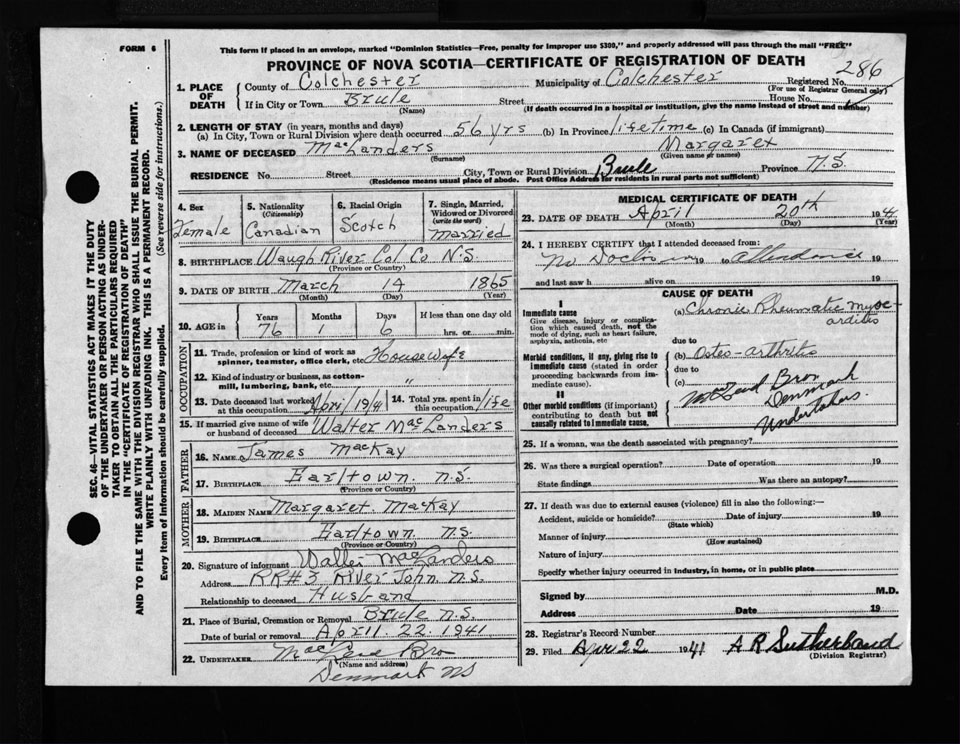 FORM 6
This form if placed in an envelope, marked "Dominion Statistics—Free, penalty for improper use $300," and properly addressed will pass through the mail "FREE"
PROVINCE OF NOVA SCOTIA—CERTIFICATE OF REGISTRATION OF DEATH
286
1. PLACE OF DEATH { County of Colchester Municipality of Colchester Registered No.
(For use of Registrar General only)
If in City or Town Brule Street House No.
(Name) (If death occurred in a hospital or institution, give the name instead of street and number)
2. LENGTH OF STAY (in years, months and days)
(a) In City, Town or Rural Division where death occurred 56 yrs (b) In Province lifetime (c) In Canada (if immigrant)
3. NAME OF DECEASED MacLanders Margaret
(Surname) (Given name or names)
RESIDENCE No. Street City, Town or Rural Division Brule Province N.S.
(Residence means usual place of abode. Post Office Address for residents in rural parts not sufficient)
4. Sex Female
5. Nationality (Citizenship) Canadian
6. Racial Origin Scotch
7. Single, Married, Widowed or Divorced (write the word) Married
8. BIRTHPLACE Waugh River Col Co N.S.
(Province or Country)
9. DATE OF BIRTH March 14 1865
(Month) (Day) (Year)
10. AGE in Years Months Days If less than one day old
76 1 6 hrs. or min.
OCCUPATION
11. Trade, profession or kind of work as spinner, teamster, office clerk, etc. Housewife
12. Kind of industry or business, as cotton-mill, lumbering, bank, etc. "
13. Date deceased last worked at this occupation April 1941
14. Total yrs. spent in this occupation life
15. If married give name of wife or husband of deceased Walter MacLanders
FATHER
16. NAME James MacKay
17. BIRTHPLACE Earltown N.S.
(Province or Country)
MOTHER
18. MAIDEN NAME Margaret MacKay
19. BIRTHPLACE Earltown N.S.
(Province or Country)
20. Signature of informant Walter MacLanders
Address RR#3 River John N.S.
Relationship to deceased Husband
21. Place of Burial, Cremation or Removal Brule N.S.
Date of burial or removal April 22 1941
22. UNDERTAKER Bro
(Name and address)
Denmark NS
MEDICAL CERTIFICATE OF DEATH
23. DATE OF DEATH April 20th 1941
(Month) (Day) (Year)
24. I HEREBY CERTIFY that I attended deceased from:
No Doctor in 19 to attendance 19
and last saw h alive on 19
CAUSE OF DEATH
I
Immediate cause
Give disease, injury or complication which caused death, not the mode of dying, such as heart failure, asphyxia, asthenia, etc
(a) Chronic Rheumatic myocarditis
due to
Morbid conditions, if any, giving rise to immediate cause (stated in order proceeding backwards from immediate cause).
(b) Osteo-arthritis
due to
(c)
II
Other morbid conditions (if important) contributing to death but not causally related to immediate cause.
Bros
Denmark
Undertakers.
25. If a woman, was the death associated with pregnancy?
26. Was there a surgical operation? Date of operation 19
State findings Was there an autopsy?
27. If death was due to external causes (violence) fill in also the following:—
Accident, suicide or homicide? Date of injury 19
(State which)
Manner of injury
(How sustained)
Nature of injury
Specify whether injury occurred in industry, in home, or in public place
Signed by M.D.
Address Date 19
28. Registrar's Record Number
29. Filed Apr 22 1941 A R Sutherland
(Division Registrar)
SEC. 46—VITAL STATISTICS ACT MAKES IT THE DUTY
OF THE UNDERTAKER OR PERSON ACTING AS UNDER-
TAKER TO OBTAIN ALL THE PARTICULARS REQUIRED
IN THE "CERTIFICATE OF REGISTRATION OF DEATH"
AND TO FILE THE SAME WITH THE DIVISION REGISTRAR WHO SHALL ISSUE THE BURIAL PERMIT.
WRITE PLAINLY WITH UNFADING INK. THIS IS A PERMANENT RECORD.
Every item of information should be carefully supplied. (See reverse side for instructions.)